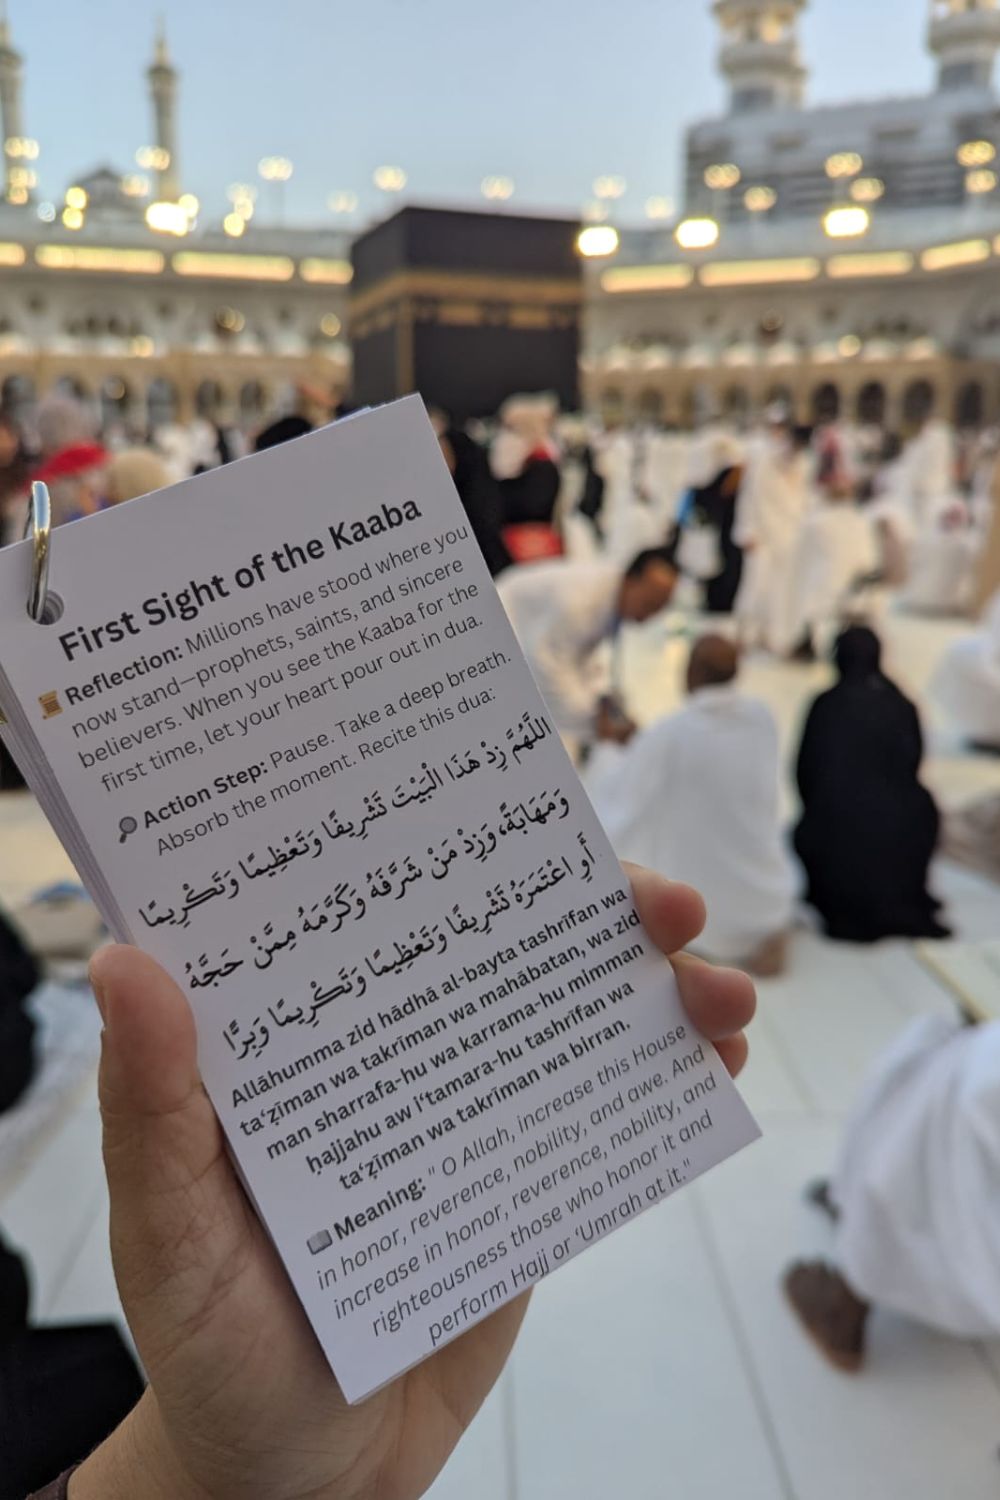 First Sight of the Kaaba
📜 Reflection: Millions have stood where you
now stand—prophets, saints, and sincere
believers. When you see the Kaaba for the
first time, let your heart pour out in dua.
🔎 Action Step: Pause. Take a deep breath.
Absorb the moment. Recite this dua:
اللَّهُمَّ زِدْ هَذَا الْبَيْتَ تَشْرِيفًا وَتَعْظِيمًا وَتَكْرِيمًا
وَمَهَابَةً، وَزِدْ مَنْ شَرَّفَهُ وَكَرَّمَهُ مِمَّنْ حَجَّهُ
أَوِ اعْتَمَرَهُ تَشْرِيفًا وَتَعْظِيمًا وَتَكْرِيمًا وَبِرًّا
Allāhumma zid hādhā al-bayta tashrīfan wa
ta‘ẓīman wa takrīman wa mahābatan, wa zid
man sharrafa-hu wa karrama-hu mimman
ḥajjahu aw i‘tamara-hu tashrīfan wa
ta‘ẓīman wa takrīman wa birran.
📖 Meaning: " O Allah, increase this House
in honor, reverence, nobility, and awe. And
increase in honor, reverence, nobility, and
righteousness those who honor it and
perform Hajj or ‘Umrah at it."